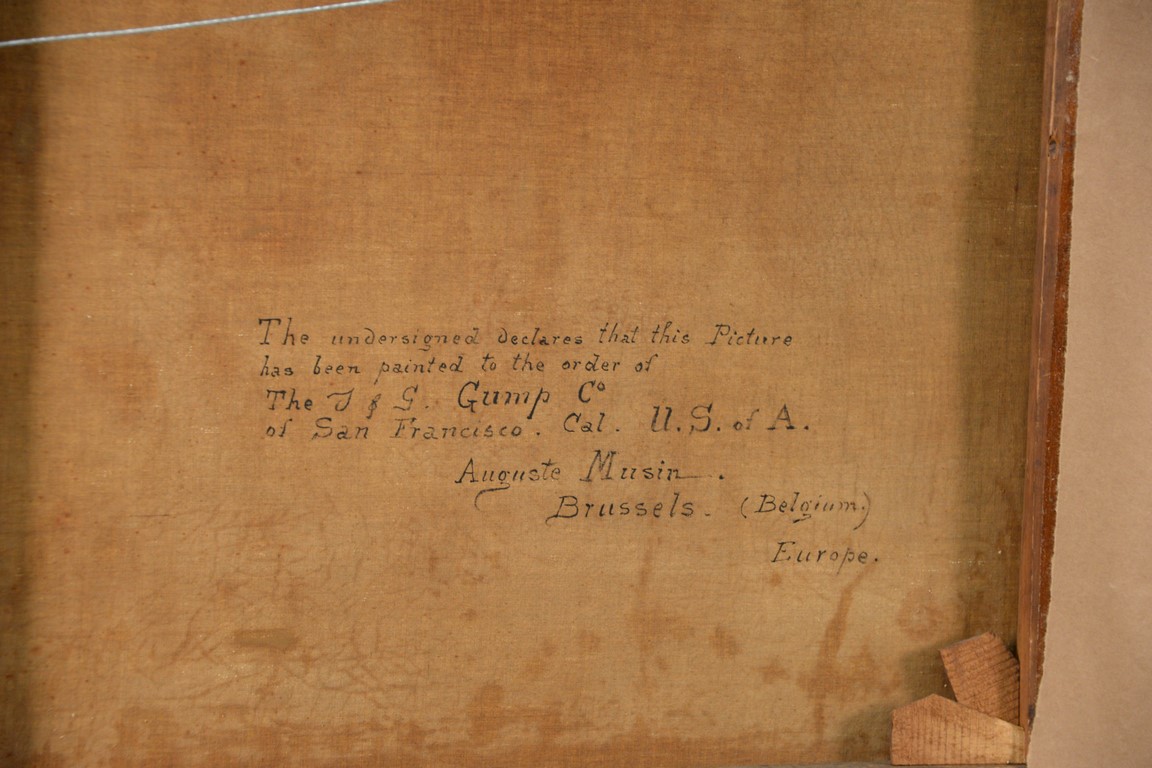 The undersigned declares that this Picture
has been painted to the order of
The J & G. Gump Co
of San Francisco. Cal. U.S. of A.
Auguste Musin.
Brussels. (Belgium.)
Europe.